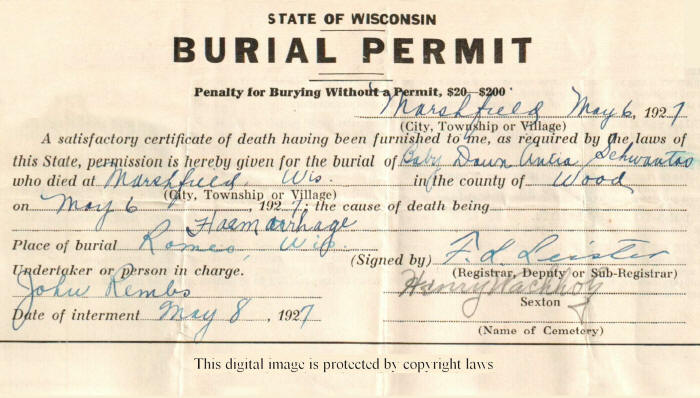 STATE OF WISCONSIN
BURIAL PERMIT
Penalty for Burying Without a Permit, $20—$200
Marshfield May 6, 1927
(City, Township or Village)
A satisfactory certificate of death having been furnished to me, as required by the laws of
this State, permission is hereby given for the burial of Baby Schwantas
who died at Marshfield, Wis. in the county of Wood
(City, Township or Village)
on May 6, 1927; the cause of death being
Haemorrhage
Place of burial Romeo, Wis.
(Signed by) F. L.
(Registrar, Deputy or Sub-Registrar)
Undertaker or person in charge.
John Rembs
Henry Wachholz
Sexton
Date of interment May 8, 1927
(Name of Cemetery)
This digital image is protected by copyright laws